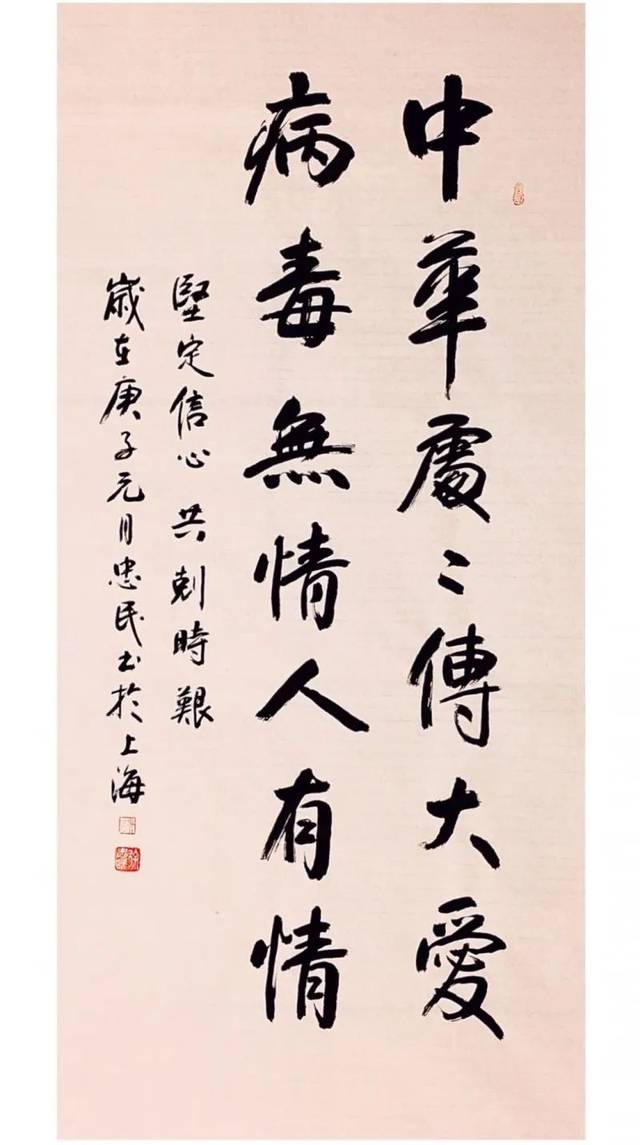 中華處〻傳大愛
病毒無情人有情
堅定信心 共剋時艱
歲在庚子元月忠民书於上海